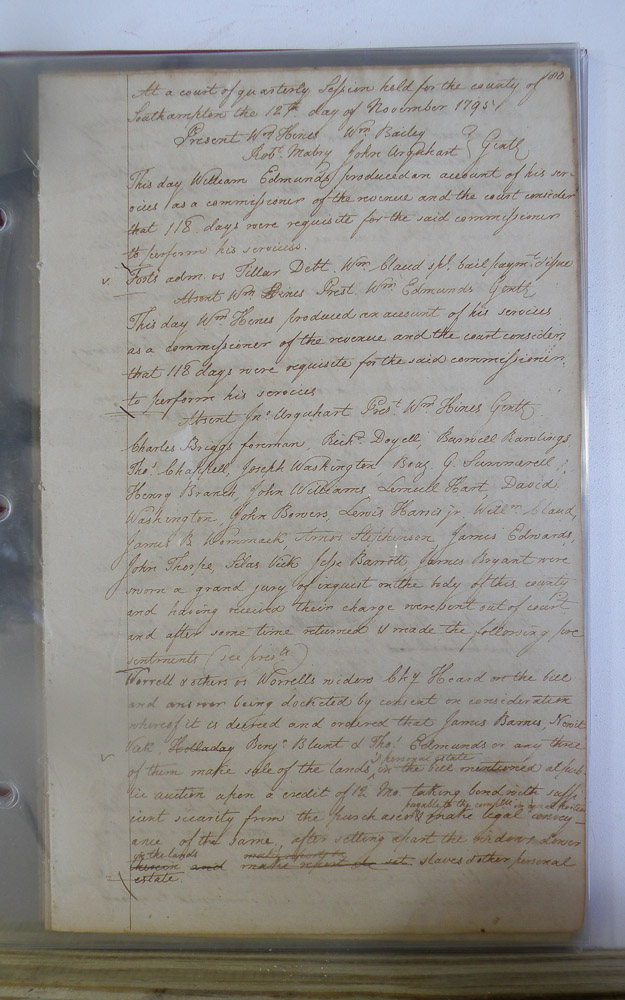 180
At a court of quarterly Session held for the county of
Southampton the 12th day of November 1795
Present Wm Hines Wm Bailey
Robt. Mabry John Urquhart } Gentl
This day William Edmunds produced an account of his ser-
vices as a commissioner of the revenue and the court consider
that 118 days were requisite for the said commissioner
to perform his services.
Forts adm. vs Tillar Debt. Wm. Claud spl. bail paymt.
Absent Wm Hines Prest. Wm Edmunds Gentl
This day Wm Hines produced an account of his services
as a commissioner of the revenue and the court consider
that 118 days were requisite for the said commissioner
to perform his services
Absent Jno Urquhart Prest Wm Hines Gentl
Charles Briggs foreman, Richd. Doyell, Barwell Rawlings
Thos. Chappell, Joseph Washington Boaz G. Summerell
Henry Branch, John Williams, Lemuell Hart, David
Washington, John Bowers, Lewis Harris jr. Willm. Claud,
James B. Wommack Amos Stephenson James Edwards,
John Thorpe, Silas Vick Jesse Barrott James Bryant were
sworn a grand jury of inquest on the body of this county
and having received their charge were sent out of court
and after some time returned & made the following pre
sentments (see prests)
Worrell & others vs Worrells widow Chy Heard on the bill
and answer being docketed by consent on consideration
whereof it is decreed and ordered that James Barnes, Newit
Vick Holladay Benj. Blunt & Thos. Edmunds or any three
& personal estate
of them make sale of the lands in the bill mentioned at pub-
lic auction upon a credit of 12 Mo. taking bond with suffi
cient security from the purchasers & make legal convey-
payable to the
ance of the same, after setting apart the widows Dower
in the lands
thereon and make report &c set slaves & other personal
estate